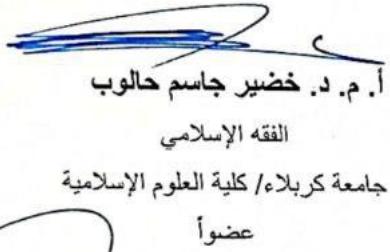 أ. م. د. خضير جاسم حالوب
الفقه الإسلامي
جامعة كربلاء/ كلية العلوم الإسلامية
عضواً